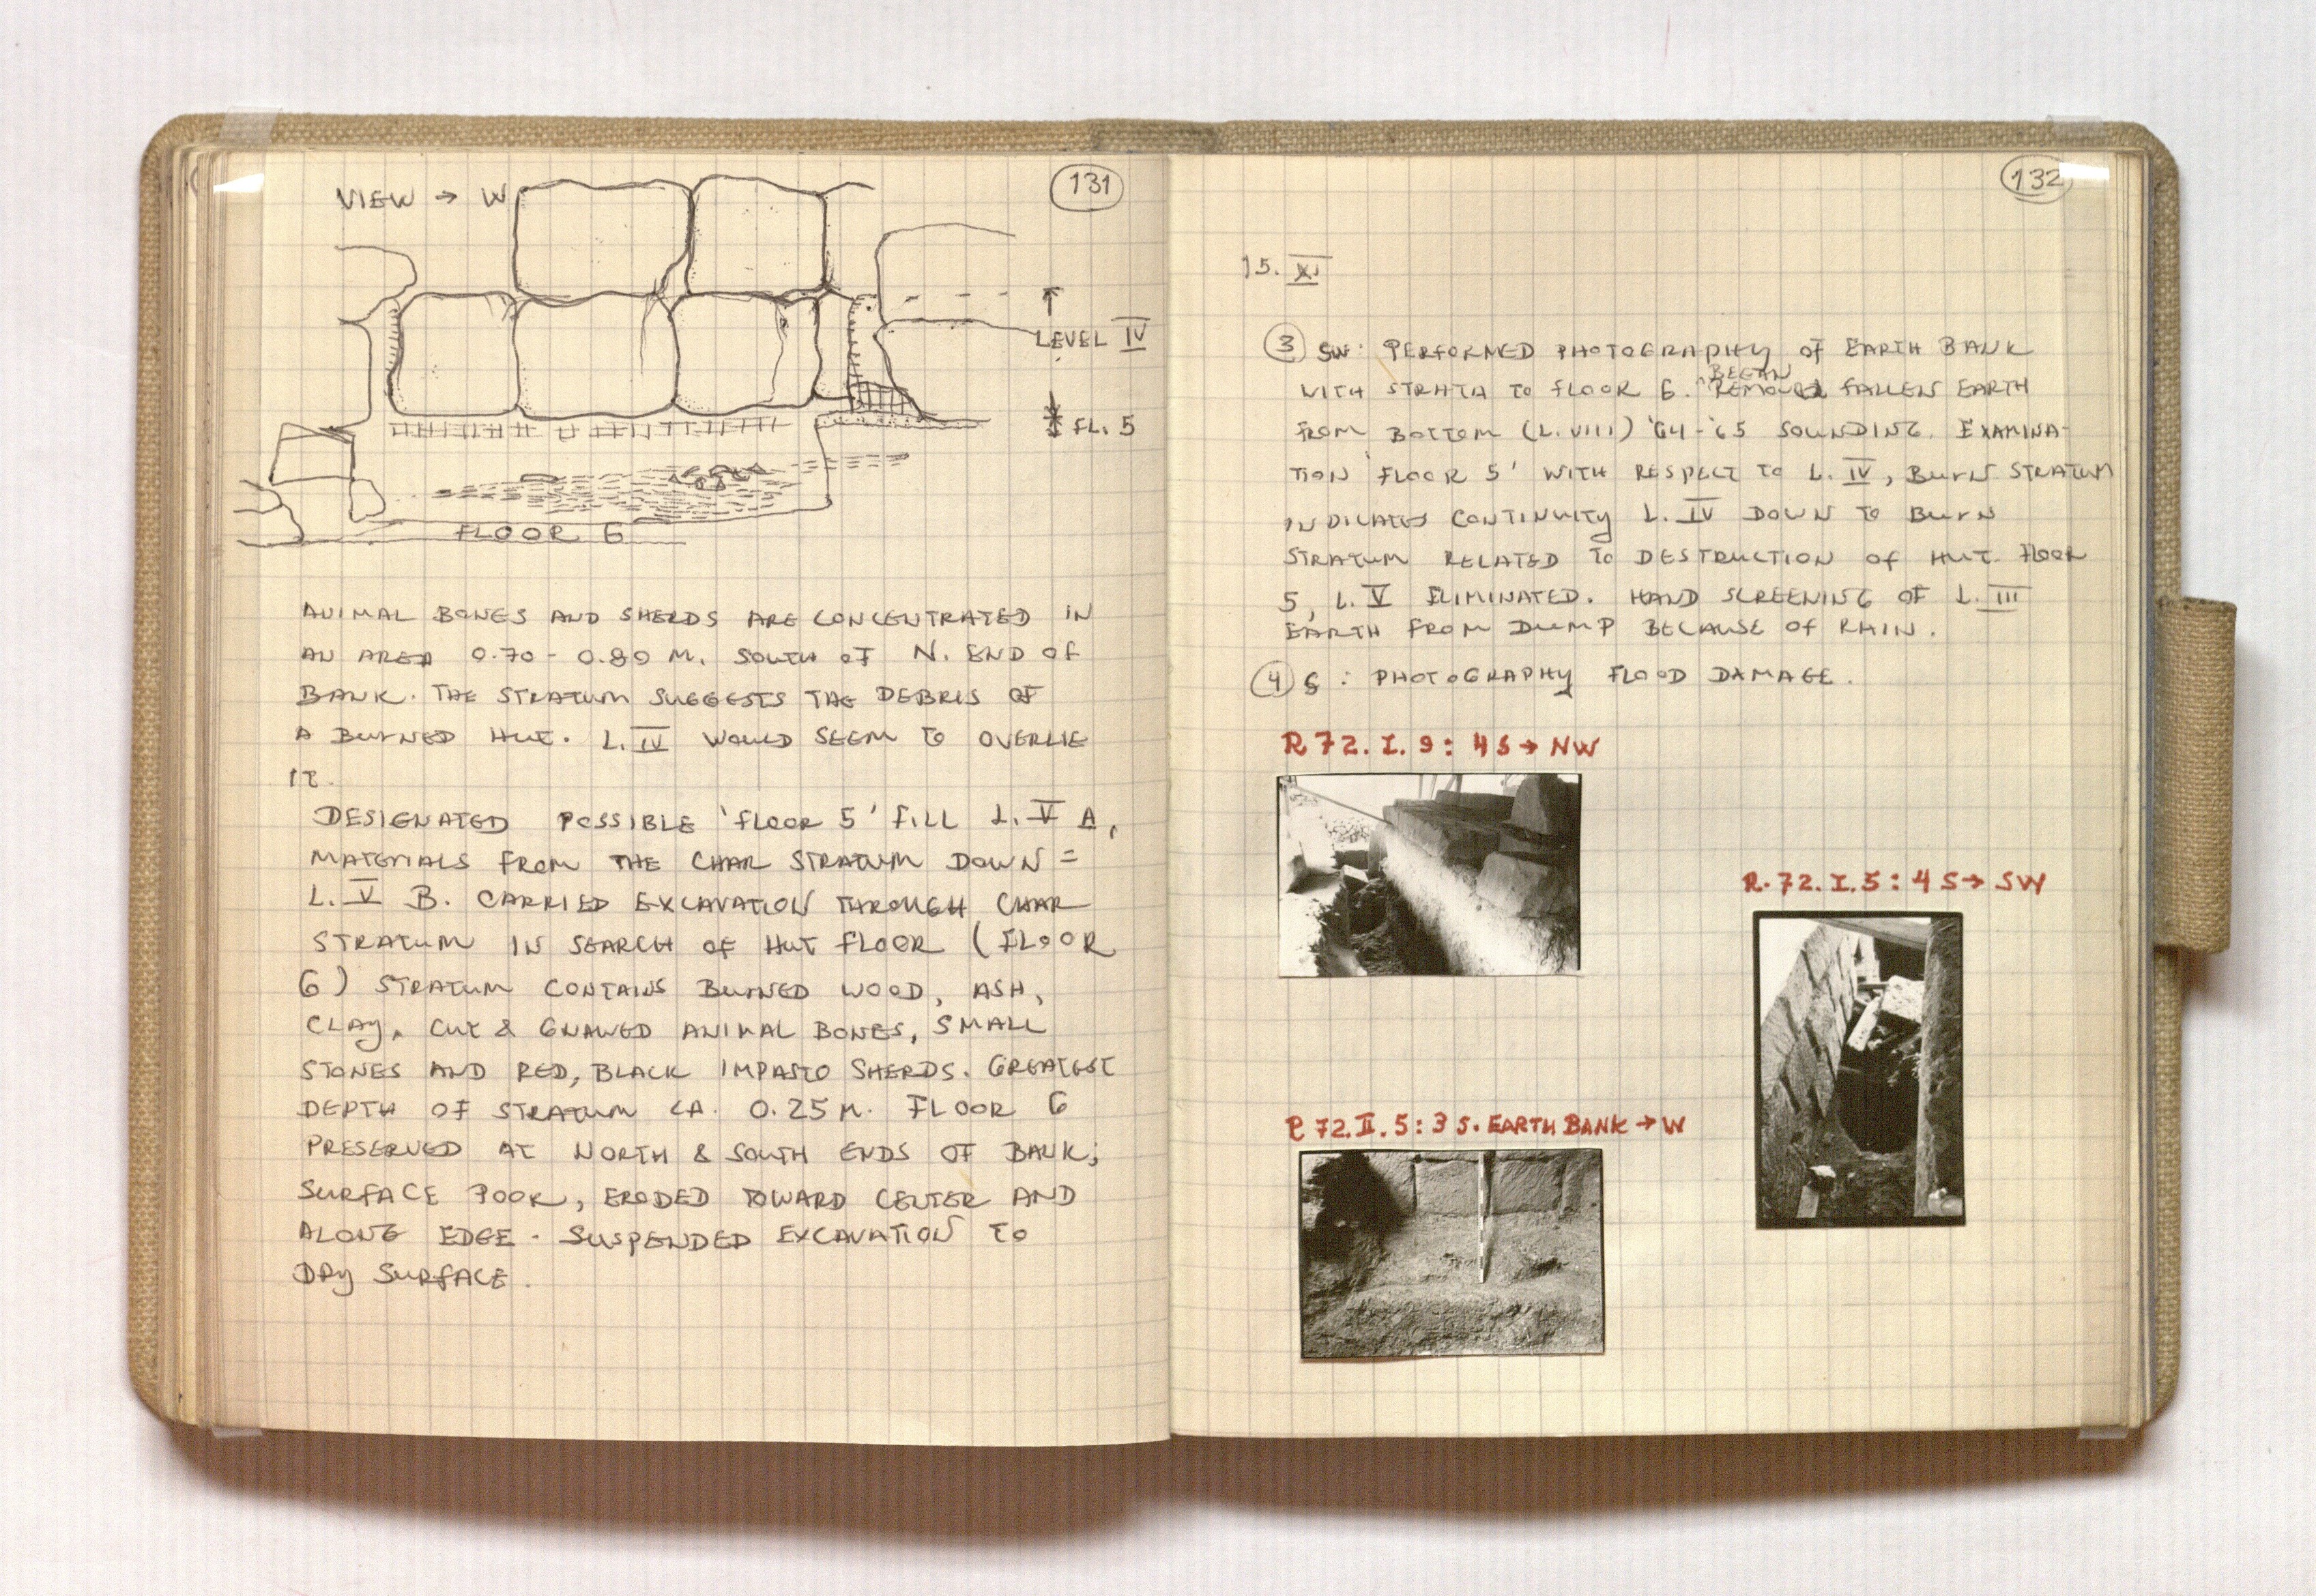 131
VIEW → W
LEVEL IV
FL. 5
FLOOR 6
ANIMAL BONES AND SHERDS ARE CONCENTRATED IN
AN AREA 0.70 - 0.80 M. SOUTH OF N. END OF
BANK. THE STRATUM SUGGESTS THE DEBRIS OF
A BURNED HUT. L. IV WOULD SEEM TO OVERLIE
IT.
DESIGNATED POSSIBLE 'FLOOR 5' FILL L. V A,
MATERIALS FROM THE CHAR STRATUM DOWN =
L. V B. CARRIED EXCAVATION THROUGH CHAR
STRATUM IN SEARCH OF HUT FLOOR (FLOOR
6) STRATUM CONTAINS BURNED WOOD, ASH,
CLAY, CUT & GNAWED ANIMAL BONES, SMALL
STONES AND RED, BLACK IMPASTO SHERDS. GREATEST
DEPTH OF STRATUM CA. 0.25 M. FLOOR 6
PRESERVED AT NORTH & SOUTH ENDS OF BANK;
SURFACE POOR, ERODED TOWARD CENTER AND
ALONG EDGE. SUSPENDED EXCAVATION TO
DRY SURFACE.
132
15. XI
3 SW: PERFORMED PHOTOGRAPHY OF EARTH BANK
WITH STRATA TO FLOOR 6. BEGAN REMOVAL FALLEN EARTH
FROM BOTTOM (L. VIII) '64-'65 SOUNDING. EXAMINA-
TION 'FLOOR 5' WITH RESPECT TO L. IV, BURN STRATUM
INDICATES CONTINUITY L. IV DOWN TO BURN
STRATUM RELATED TO DESTRUCTION OF HUT. FLOOR
5, L. V ELIMINATED. HAND SCREENING OF L. III
EARTH FROM DUMP BECAUSE OF RAIN.
4 S: PHOTOGRAPHY FLOOD DAMAGE.
R 72. I. 9: 4 S → NW
R. 72. I. 5: 4 S → SW
R 72. II. 5: 3 S. EARTH BANK → W